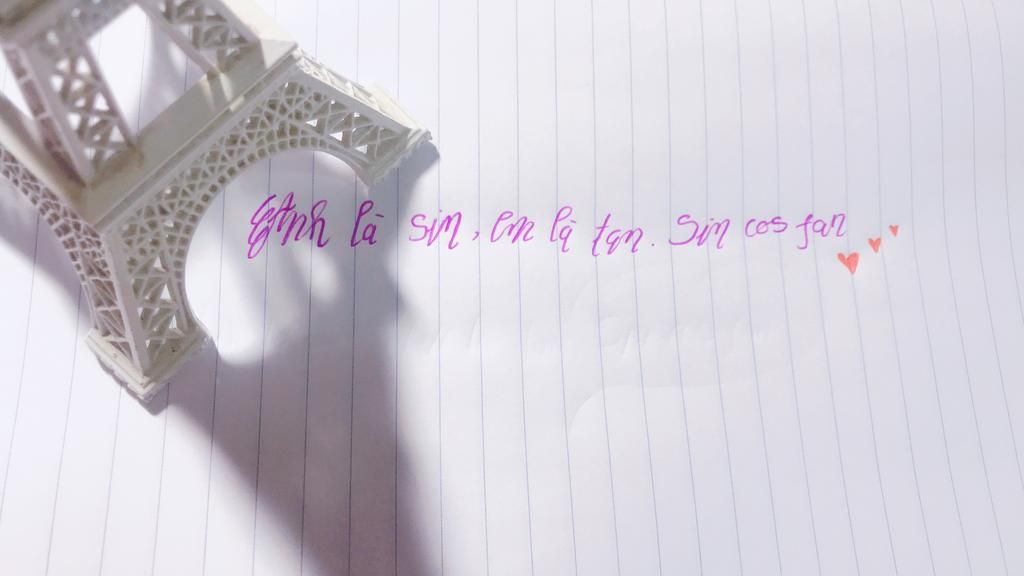 Anh là sin, em là tan. Sin cos tan